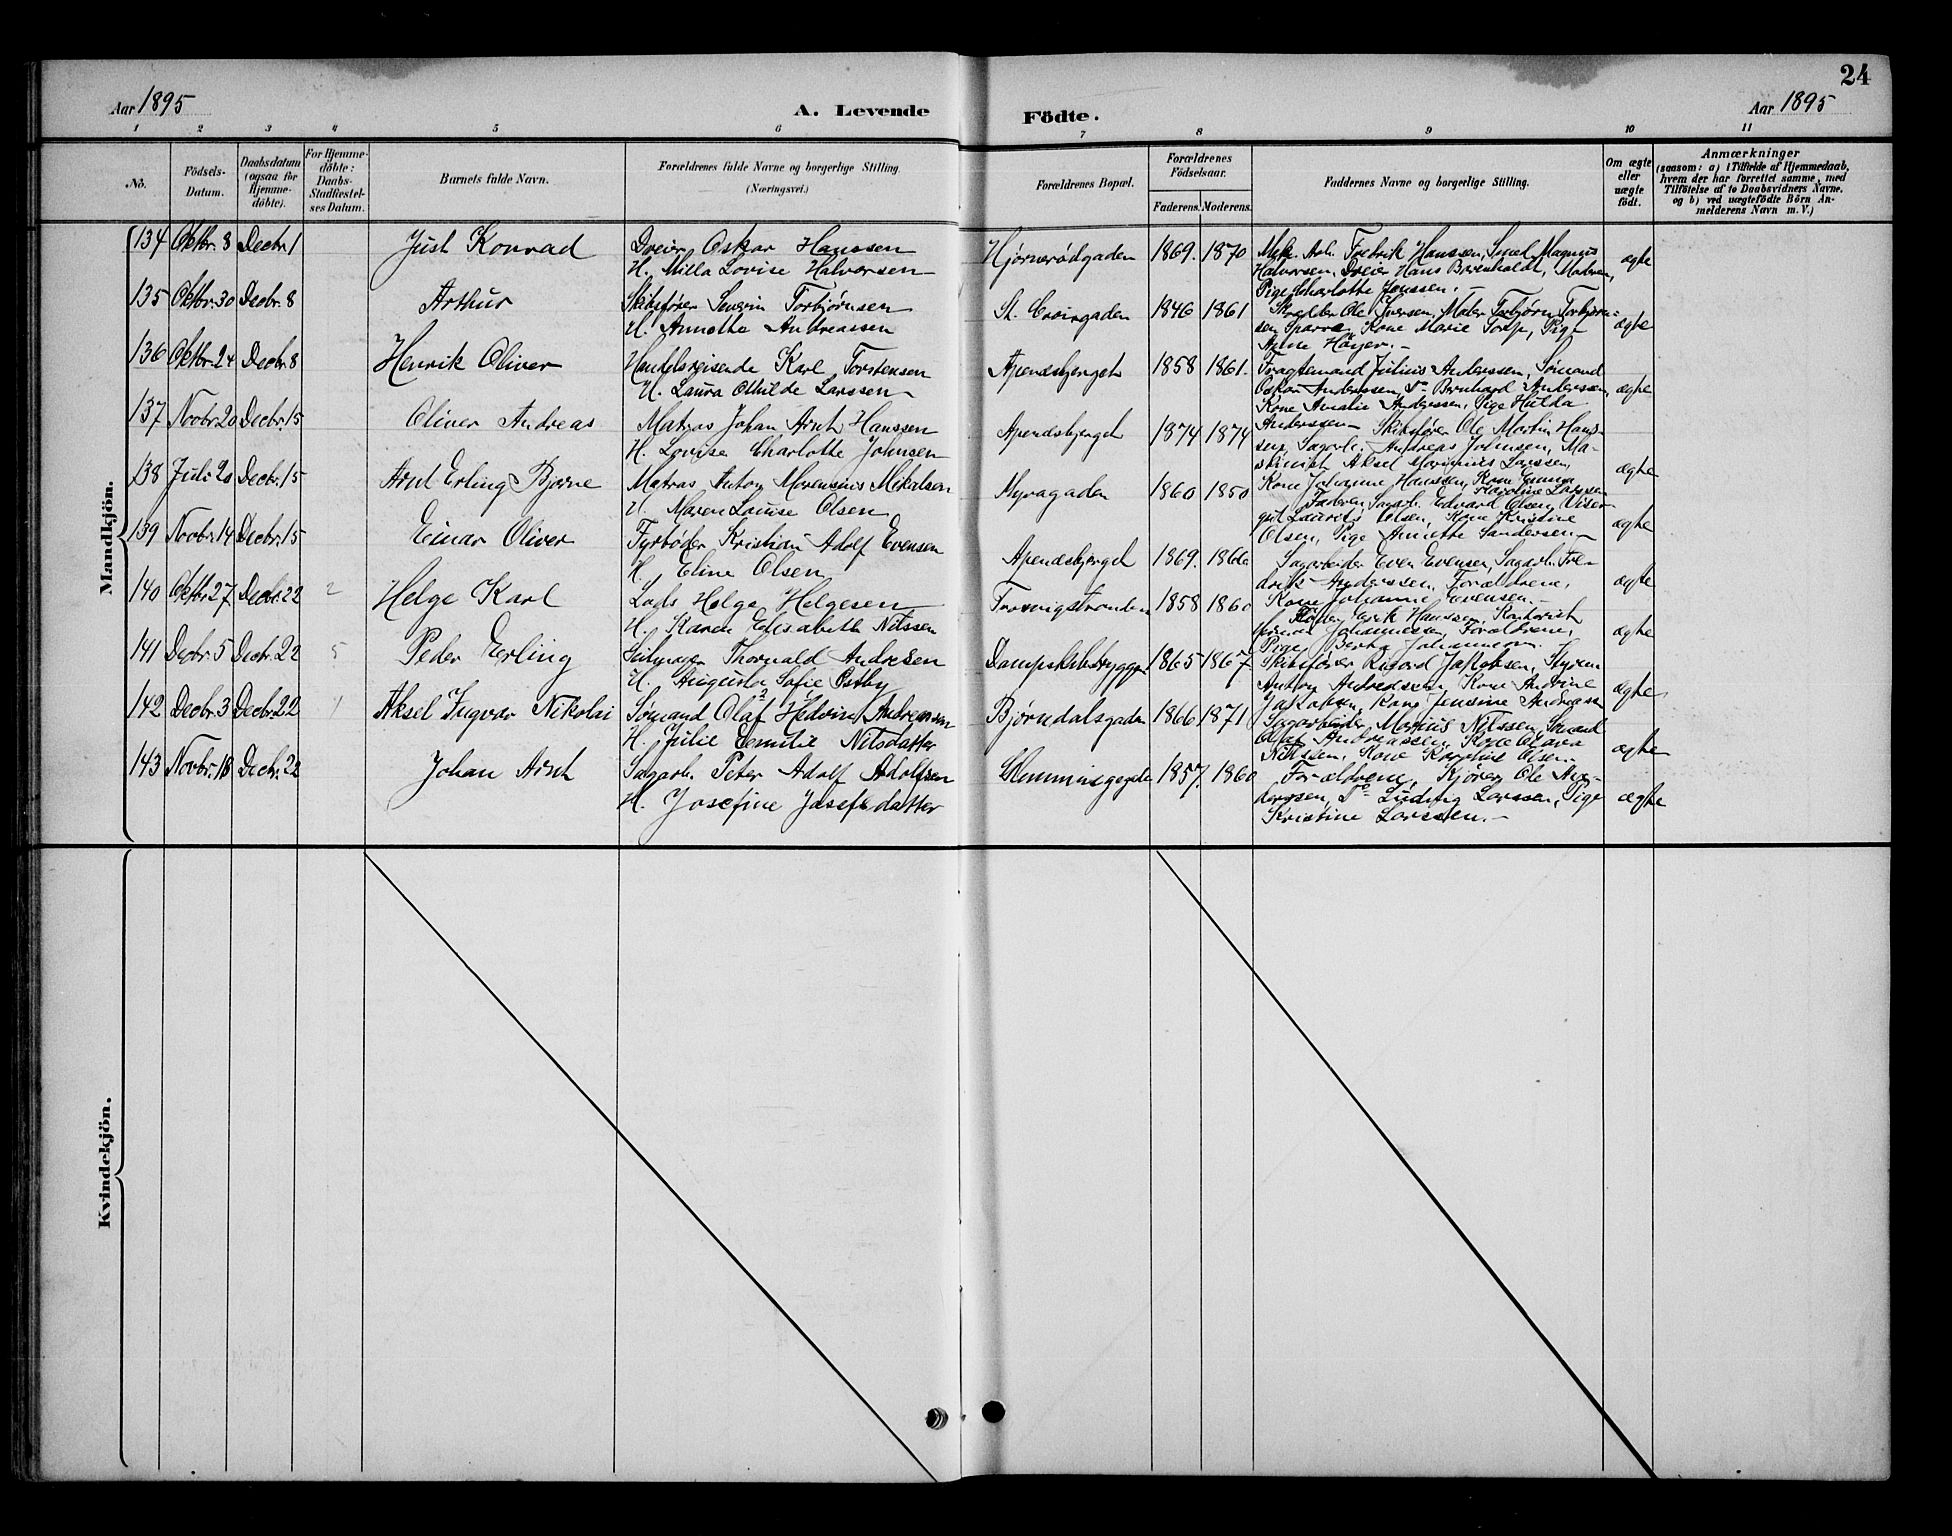 24
Aar 1895
A. Levende
Födte.
Aar 1895
1 2 3 4 5 6 7 8 9 10 11
No.
Födsels-
Datum.
Daabsdatum
(ogsaa for
Hjemme-
döbte).
For Hjemme-
döbte:
Daabs-
Stadfæstel-
ses Datum.
Barnets fulde Navn.
Forældrenes fulde Navne og borgerlige Stilling.
(Næringsvei.)
Forældrenes Bopæl.
Forældrenes
Födselsaar.
Faderens. Moderens.
Faddernes Navne og borgerlige Stilling.
Om ægte
eller
uægte
födt.
Anmærkninger
(saasom: a) i Tilfælde af Hjemmedaab,
hvem der har forrettet samme, med
Tilföielse af to Daabsvidners Navne.
og b) ved uægtefödte Börn An-
melderens Navn m. V.)
Mandkjön.
134 Oktbr. 8 Decbr. 1 Just Konrad
Dreier Oskar Hanssen
H. Milla Lovise Halvorsen
Hjørnerødgaden 1869. 1870
Mek. Arb. Fredrik Hanssen, Smed Magnus
Halvorsen, Dreier Hans Berenholdt, Madren,
Pige Charlotte Jenssen.
ægte
135 Oktbr. 30 Decbr. 8 Arthur
Skibsfører Severin Torbjørnsen
H. Annethe Andreassen
St. Croixgaden 1846 1861
Skrædder Ole Iversen, Maler Torbjørn Torbjørn-
sen Sparre, Kone Marie Torp, Pige
Anne Høyer.
ægte
136 Oktbr. 24 Decbr. 8 Henrik Oliver
Handelsreisende Karl Torstensen
H. Laura Othilde Larssen
Apenesbjerget 1858 1861.
Fragtemand Julius Anderssen, Sømand
Oskar Anderssen, Do Bernhard Anderssen,
Kone Amalie Anderssen, Pige Hulda
Anderssen
ægte
137 Novbr. 20 Decbr. 15 Oliver Andreas
Matros Johan Arnt Hanssen
H. Lovise Charlotte Johnsen
Apenesbjerget 1874 1874
Skibsfører Ole Martin Hans-
sen, Sagarb. Andreas Johnsen, Ma-
skinist Aksel Marinius Larssen,
Kone Johanne Hanssen, Kone Emma
Karoline Larssen
ægte
138 Juli 20 Decbr. 15 Arnt Erling Bjarne
Matros Anton Morensius Mikalsen
H. Maren Louise Olsen
Myragaden 1860 1850
Faderen, Sagarb. Edvard Olsen, Viser-
gut Laurits Olsen, Kone Kristine
Olsen, Pige Annette Sandersen
ægte
139 Novbr. 14 Decbr. 15 Einar Oliver
Fyrbøder Kristian Adolf Evensen
H. Eline Olsen
Apenesbjerget 1869. 1866
Sagarbeider Even Evensen, Sagarb. Fre-
drik Anderssen, Forældrene,
Kone Johanne Evensen.
ægte
140 Oktbr. 27 Decbr. 22 2 Helge Karl
Lods Helge Helgesen
H. Karen Elisabeth Nilssen
1858 1860
Erik Hanssen, Kontorist
Johannessen, Forældrene,
Pige Berta Johannessen.
ægte
141 Decbr. 5 Decbr. 22 5 Peder Erling
Seilmager Thorvald Andresen
H. Augusta Sofie Østby
Dampskibsbryggen 1865 1867.
Skibsfører Rikard Jakobsen, Styrm.
Anton Andreassen, Kone Andrine
Jakobsen, Kone Jensine Andreassen
ægte
142 Decbr. 3 Decbr. 22 1 Aksel Ingvar Nikolai
Sømand Olaf Hedvin Andreassen
H. Julie Emilie Nilsdatter
Bjørndalsgaden 1866 1871
Sagarbeider Marius Nilssen, Sømand
Olaf Andreassen, Kone Olava
Nilssen, Kone Josefine Olsen.
ægte
143 Novbr. 18 Decbr. 22 Johan Arnt
Sagarb. Peter Adolf Adolfsen
H. Josefine Josefsdatter
Flemmingsgade 1857. 1860
Forældrene, Kjører Ole An-
derssen, Do Ludvig Larssen, Pige
Kristine Larssen.
ægte
Kvindekjön.